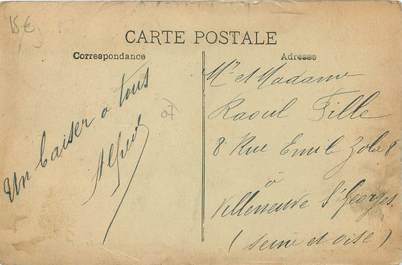 15€
CARTE POSTALE
Correspondance
Adresse
Un baiser a tous
Alfred
07
Mr et Madame
Raoul Fille
8 Rue Emile Zola
à
Villeneuve St Georges
(Seine et oise)